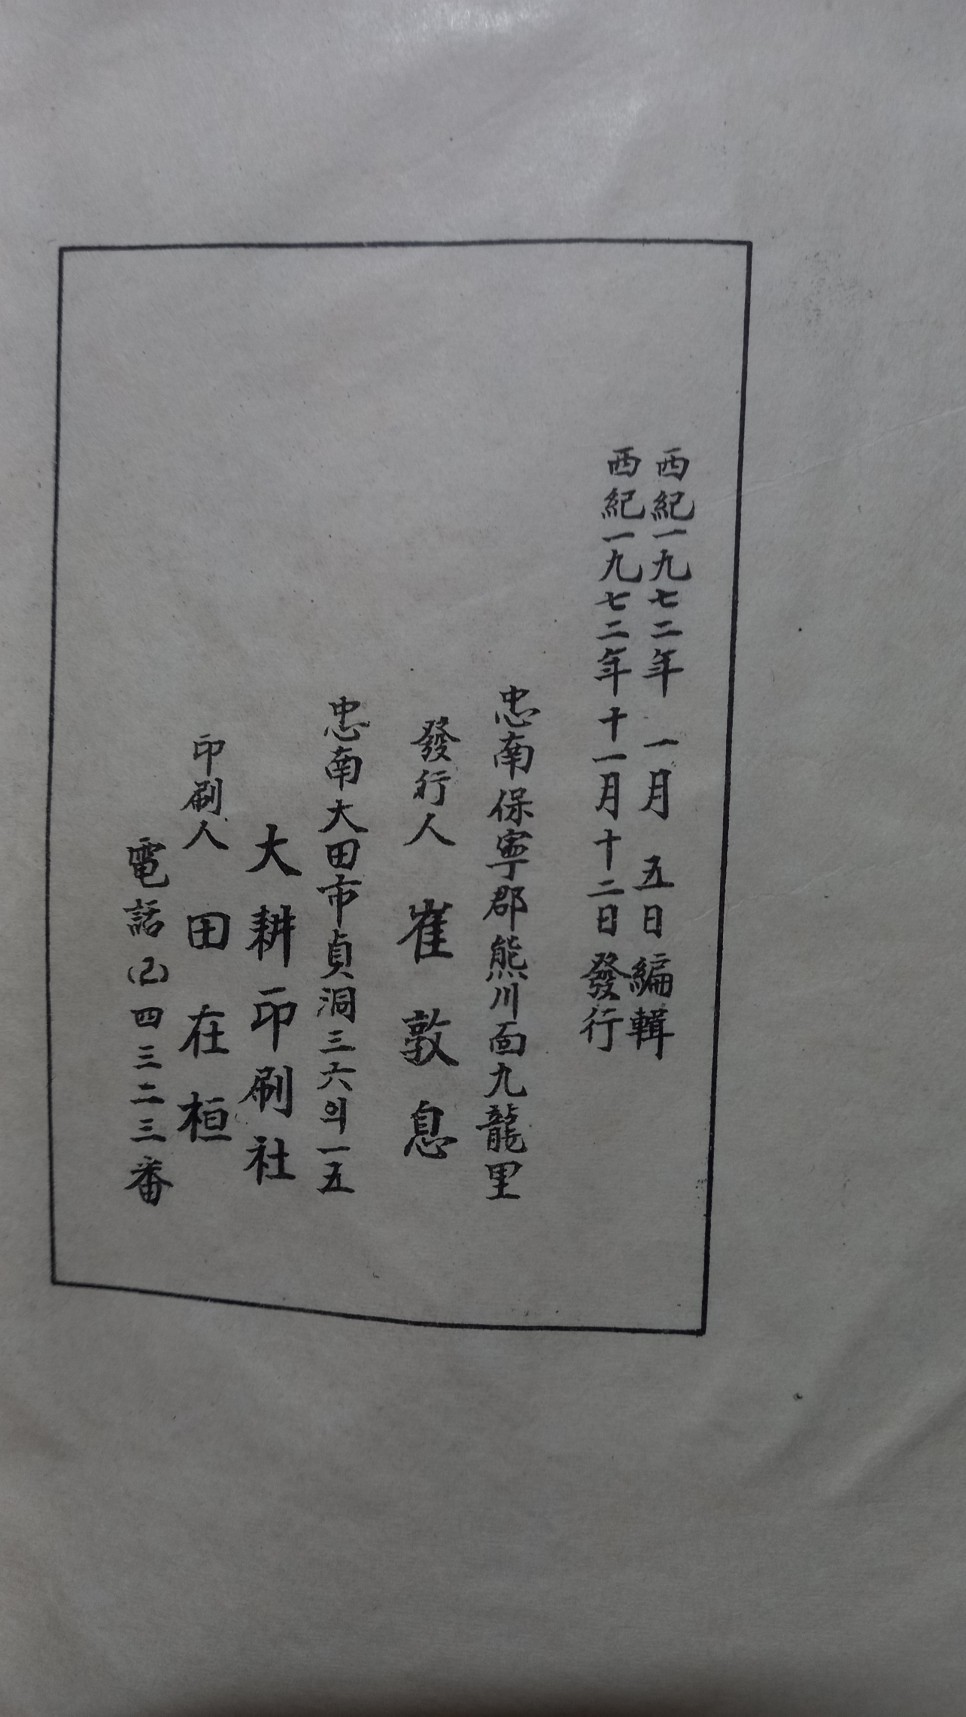 西紀一九七二年 一月 五日編輯
西紀一九七二年十一月十二日發行
忠南保寧郡熊川面九龍里
發行人 崔敦息
忠南大田市貞洞三六의一五
大耕印刷社
印刷人 田在桓
電話(2)四三二三番